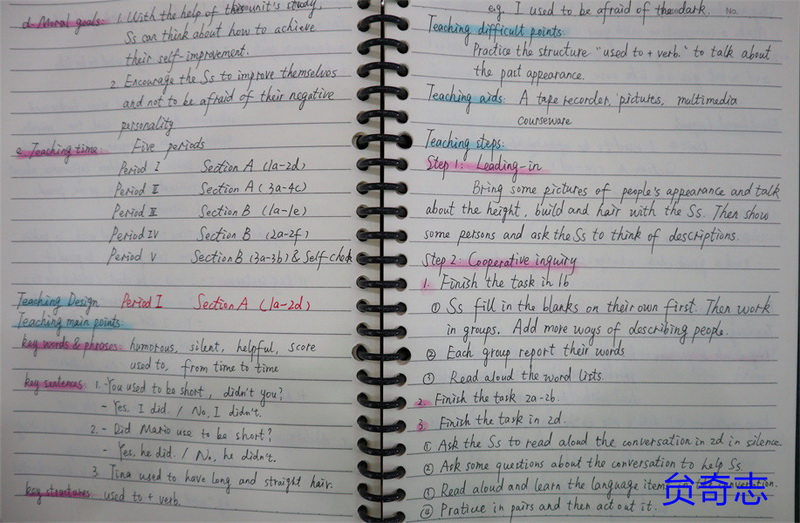 d. Moral goals: 1. With the help of the unit's study,
Ss can think about how to achieve
their self-improvement.
2. Encourage the Ss to improve themselves
and not to be afraid of their negative
personality
e. Teaching time: Five periods
Period I Section A (1a-2d)
Period II Section A (3a-4c)
Period III Section B (1a-1e)
Period IV Section B (2a-2f)
Period V Section B (3a-3b) & Self-check
Teaching Design Period I Section A (1a-2d)
Teaching main points:
key words & phrases: humorous, silent, helpful, score
used to, from time to time
key sentences: 1. - You used to be short, didn't you?
- Yes, I did. / No, I didn't.
2. - Did Mario use to be short?
- Yes, he did. / No, he didn't.
3. Tina used to have long and straight hair.
key structures: used to + verb.
e.g. I used to be afraid of the dark. No.
Teaching difficult points:
Practice the structure "used to + verb." to talk about
the past appearance.
Teaching aids: A tape recorder, pictures, multimedia
courseware
Teaching steps:
Step 1: Leading-in
Bring some pictures of people's appearance and talk
about the height, build and hair with the Ss. Then show
some persons and ask the Ss to think of descriptions.
Step 2: Cooperative inquiry
1. Finish the task in 1b
① Ss fill in the blanks on their own first. Then work
in groups. Add more ways of describing people.
② Each group report their words
③ Read aloud the word lists.
2. Finish the task 2a-2b.
3. Finish the task in 2d.
① Ask the Ss to read aloud the conversation in 2d in silence.
② Ask some questions about the conversation to help Ss
③ Read aloud and learn the language items in the conversation.
④ Pratice in pairs and then act out it.
贠奇志